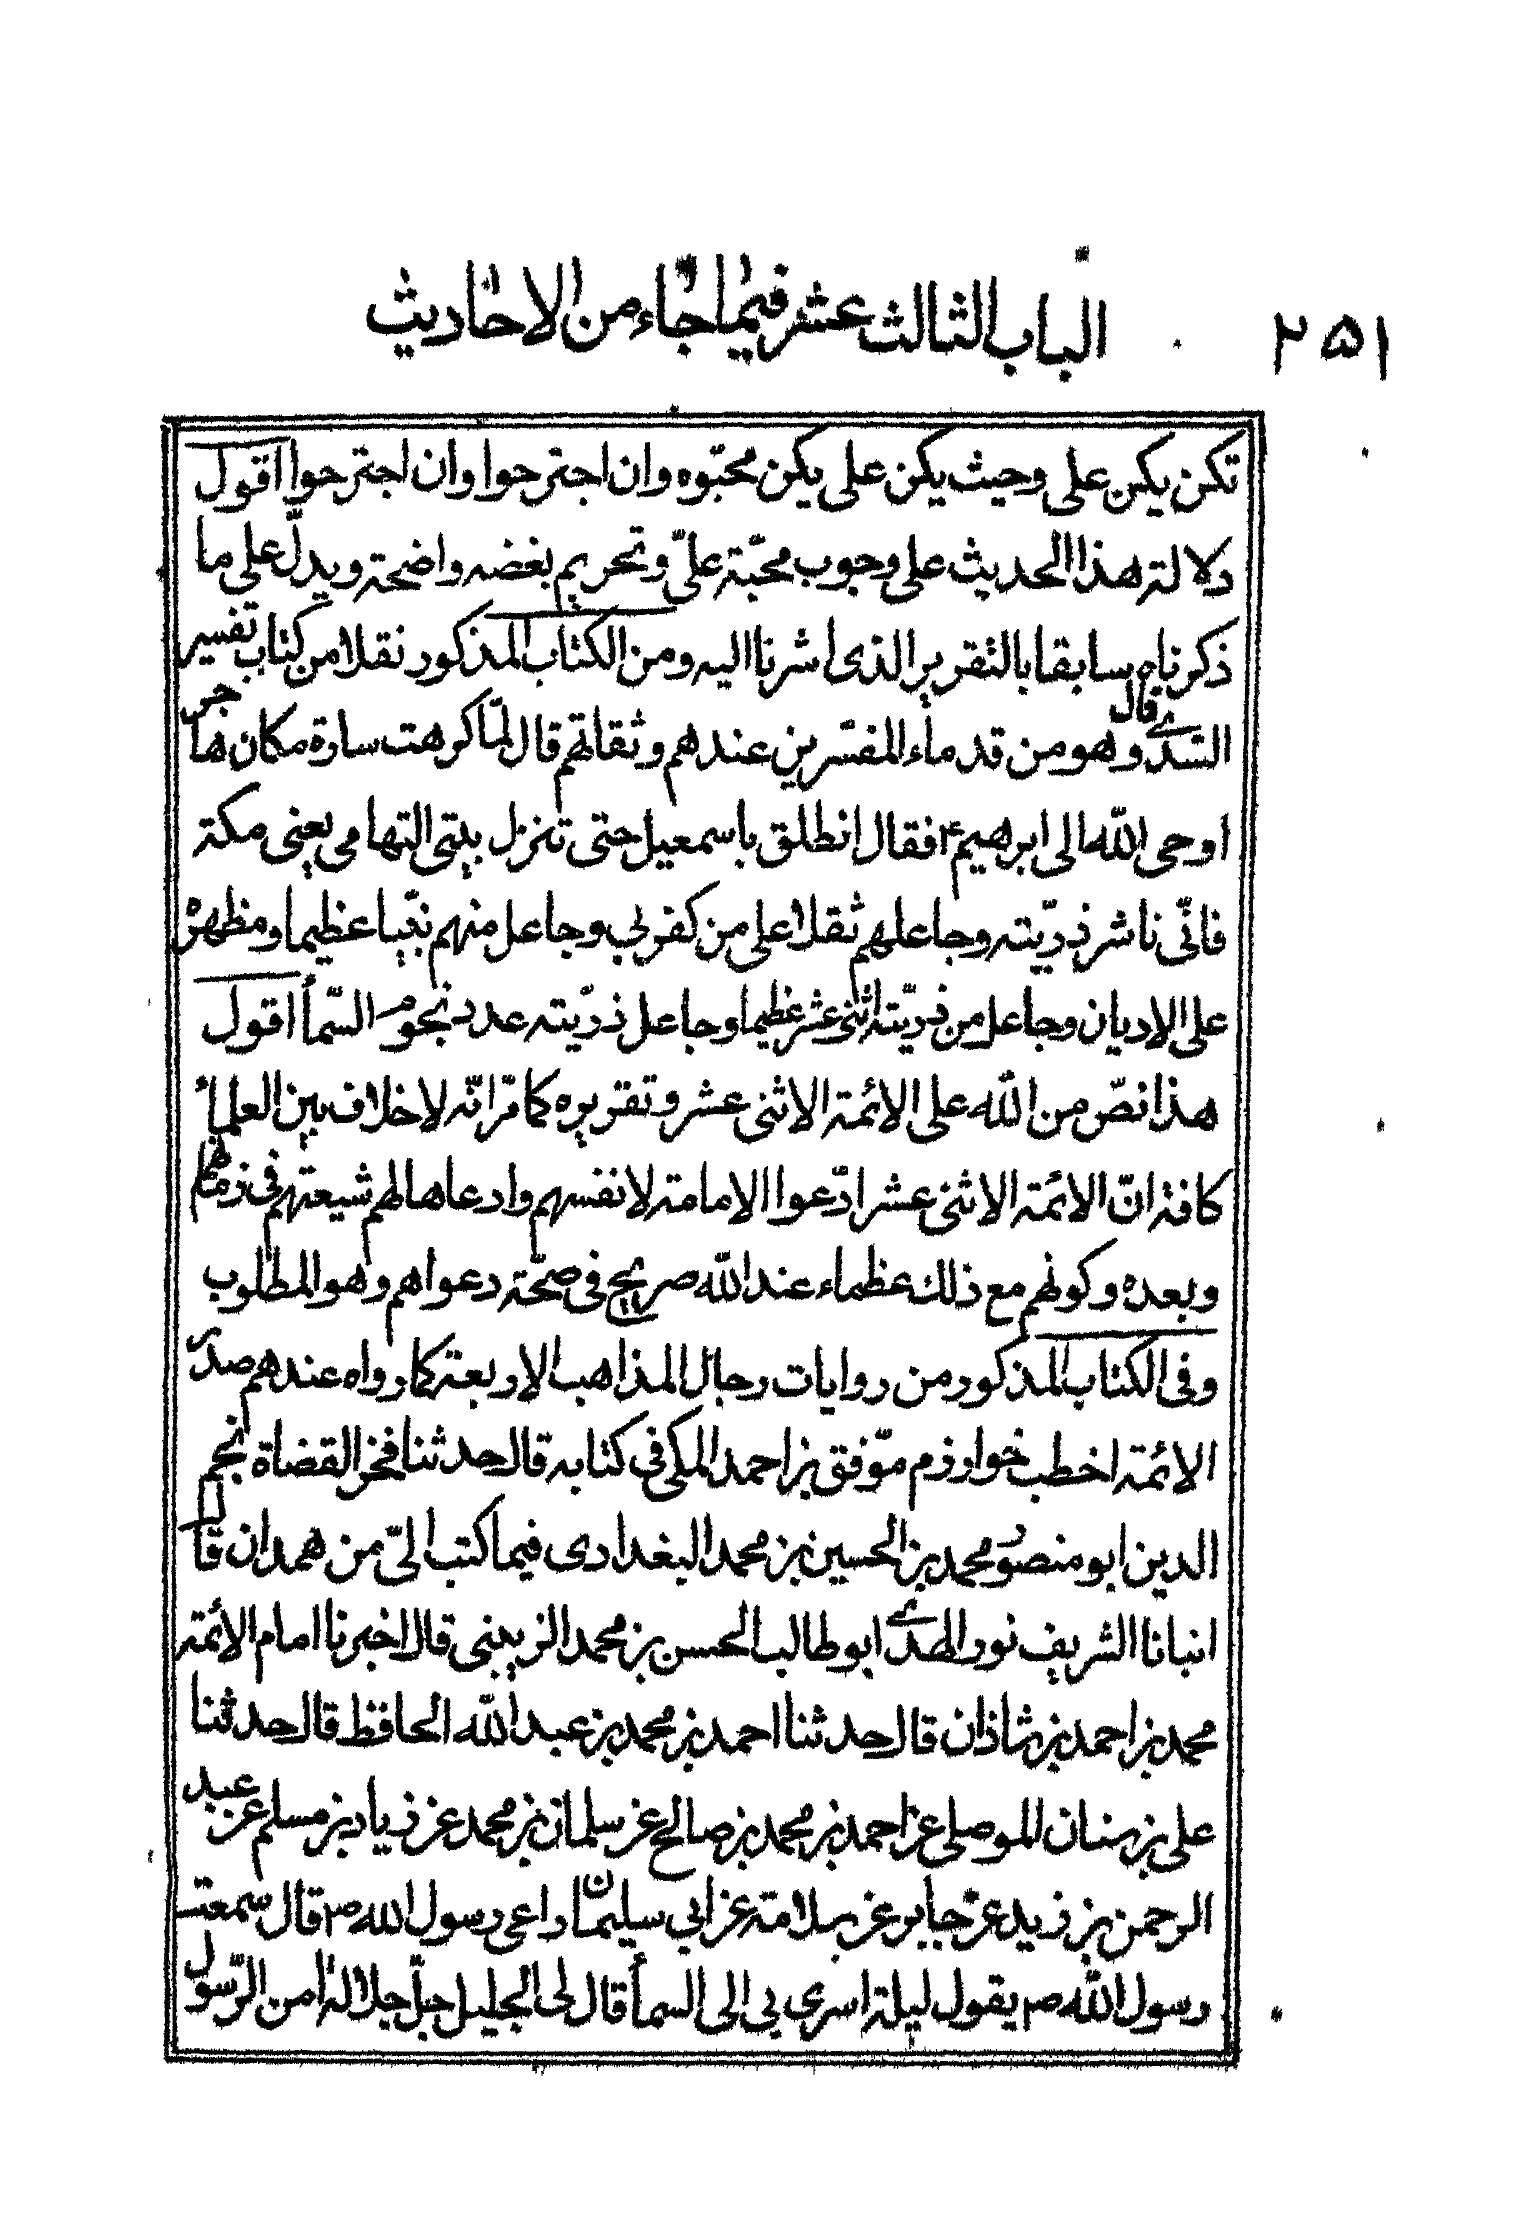 الباب الثالث عشر فيما جاء من الاحاديث
٢٥١
تكن يكن على وحيث يكن على يكن محبّوه وان اجترحوا وان اجترحوا اقول
دلالة هذا الحديث على وجوب محبّة علىّ وتحريم بغضه واضحة ويدلّ على ما
ذكرناه سابقا بالتقرير الذى اشرنا اليه ومن الكتاب المذكور نقلا من كتاب تفسير
السّدى قال وهو من قدماء المفسّرين عندهم وثقاتهم قال لمّا كرهت سارة مكان هاجر
اوحى الله الى ابرهيم ع فقال انطلق باسمعيل حتى تنزل بيتى التهامى يعنى مكة
فانّى ناشر ذرّيته وجاعلهم ثقلا على من كفر بى وجاعل منهم نبيّا عظيما ومظهره
على الاديان وجاعل من ذريّته اثنى عشر عظيما وجاعل ذرّيته عدد نجوم السّمأ اقول
هذا نصّ من الله على الائمة الاثنى عشر وتقريره كما مّر انّه لا خلاف بين العلمأ
كافة انّ الائمة الاثنى عشر ادّعوا الامامة لانفسهم وادعاها لهم شيعتهم فى زمانهم
وبعده وكونهم مع ذلك عظماء عند الله صريح فى صحّة دعواهم وهو المطلوب
وفى الكتاب المذكور من روايات رجال المذاهب الاربعة كما رواه عندهم صدر
الائمة اخطب خوارزم موّفق بن احمد المكى فى كتابه قال حدثنا فخر القضاة نجم
الدين ابو منصور محمد بن الحسين بن محمد البغدادى فيما كتب الىّ من همدان قال
انبانا الشريف نور الهدى ابو طالب الحسن بن محمد الزينبى قال اخبرنا امام الائمة
محمد بن احمد بن شاذان قال حدثنا احمد بن محمد بن عبد الله الحافظ قال حدثنا
على بن سنان الموصلى عن احمد بن محمد بن صالح عن سلمان بن محمد عن زياد بن مسلم عن عبد
الرحمن بن زيد عن جابر عن سلامة عن ابى سليمان راعى رسول الله ص قال سمعت
رسول الله ص يقول ليلة اسرى بى الى السمأ قال لى الجليل جلّ جلاله امن الرّسول